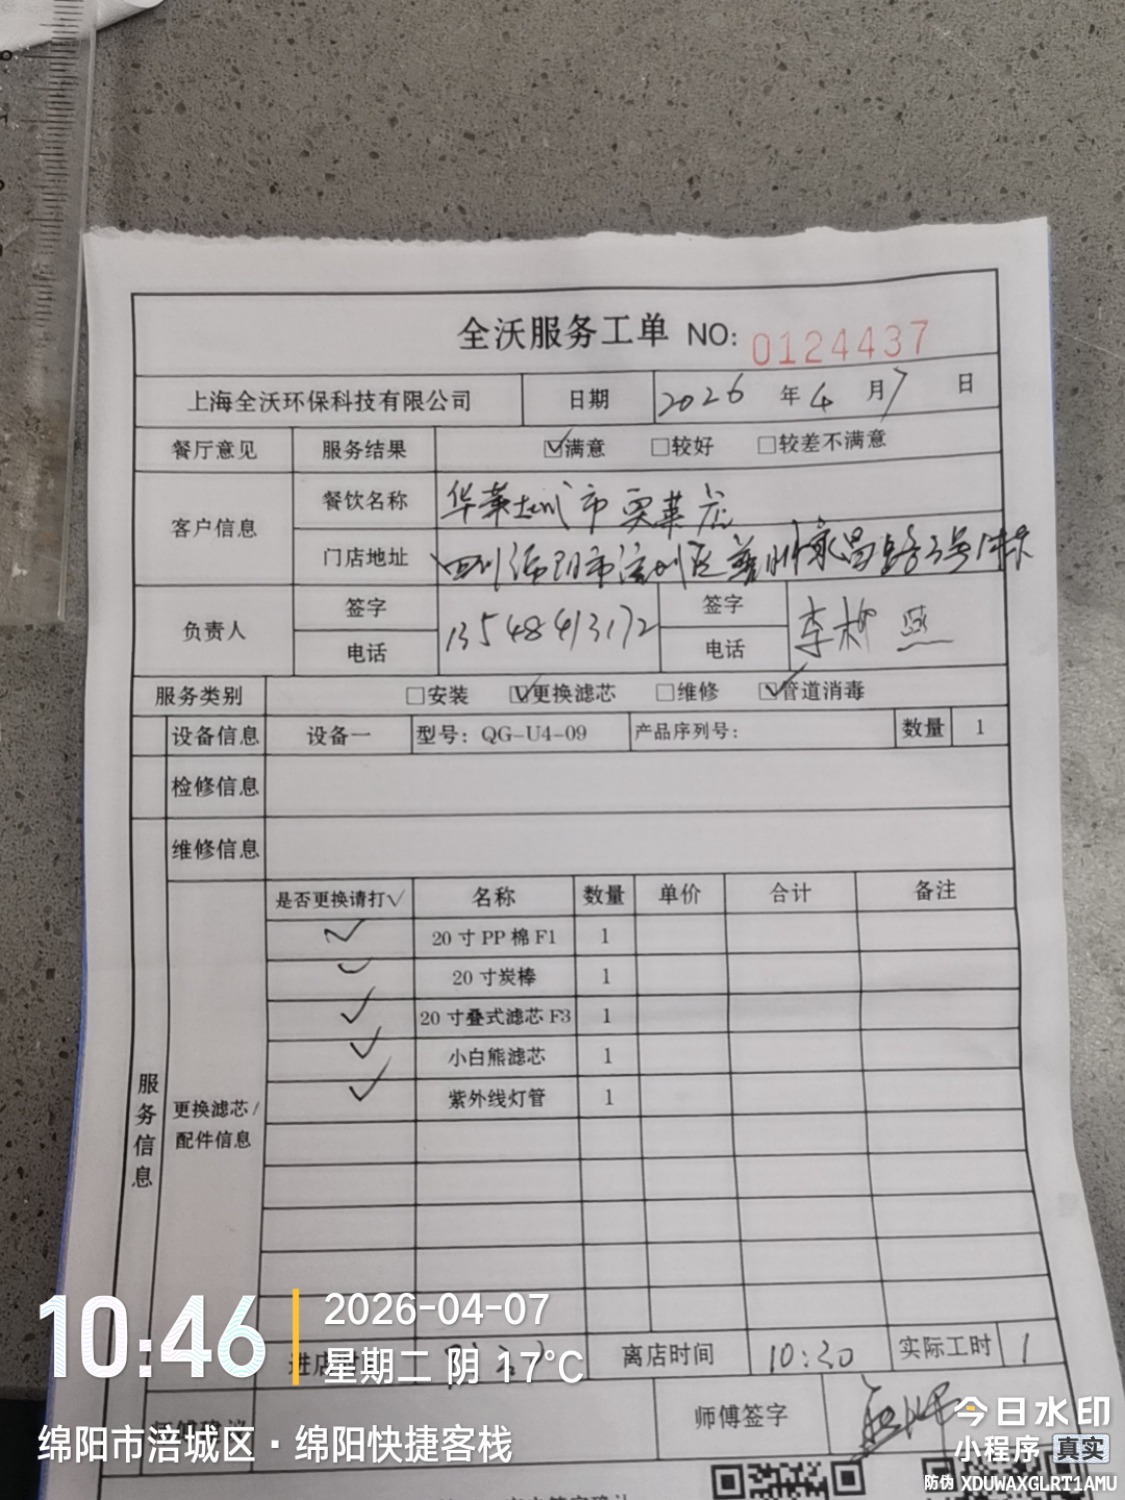 全沃服务工单 NO: 0124437
上海全沃环保科技有限公司 日期 2026 年 4 月 7 日
餐厅意见 服务结果 ☑满意 □较好 □较差不满意
客户信息 餐饮名称 华莱士 市 店
门店地址 四川绵阳市涪城区 永昌路3号1栋
负责人 签字 电话 13548413172 签字 电话 李 燕
服务类别 □安装 ☑更换滤芯 □维修 ☑管道消毒
设备信息 设备一 型号: QG-U4-09 产品序列号: 数量 1
检修信息
维修信息
服务信息
更换滤芯/
配件信息
是否更换请打√ 名称 数量 单价 合计 备注
✓ 20寸PP棉F1 1
✓ 20寸炭棒 1
✓ 20寸叠式滤芯F3 1
✓ 小白熊滤芯 1
✓ 紫外线灯管 1
进店时间 离店时间 10:30 实际工时 1
师傅签字
10:46
2026-04-07
星期二 阴 17°C
绵阳市涪城区·绵阳快捷客栈
今日水印
小程序 真实
防伪 XDUWAXGLRT1AMU